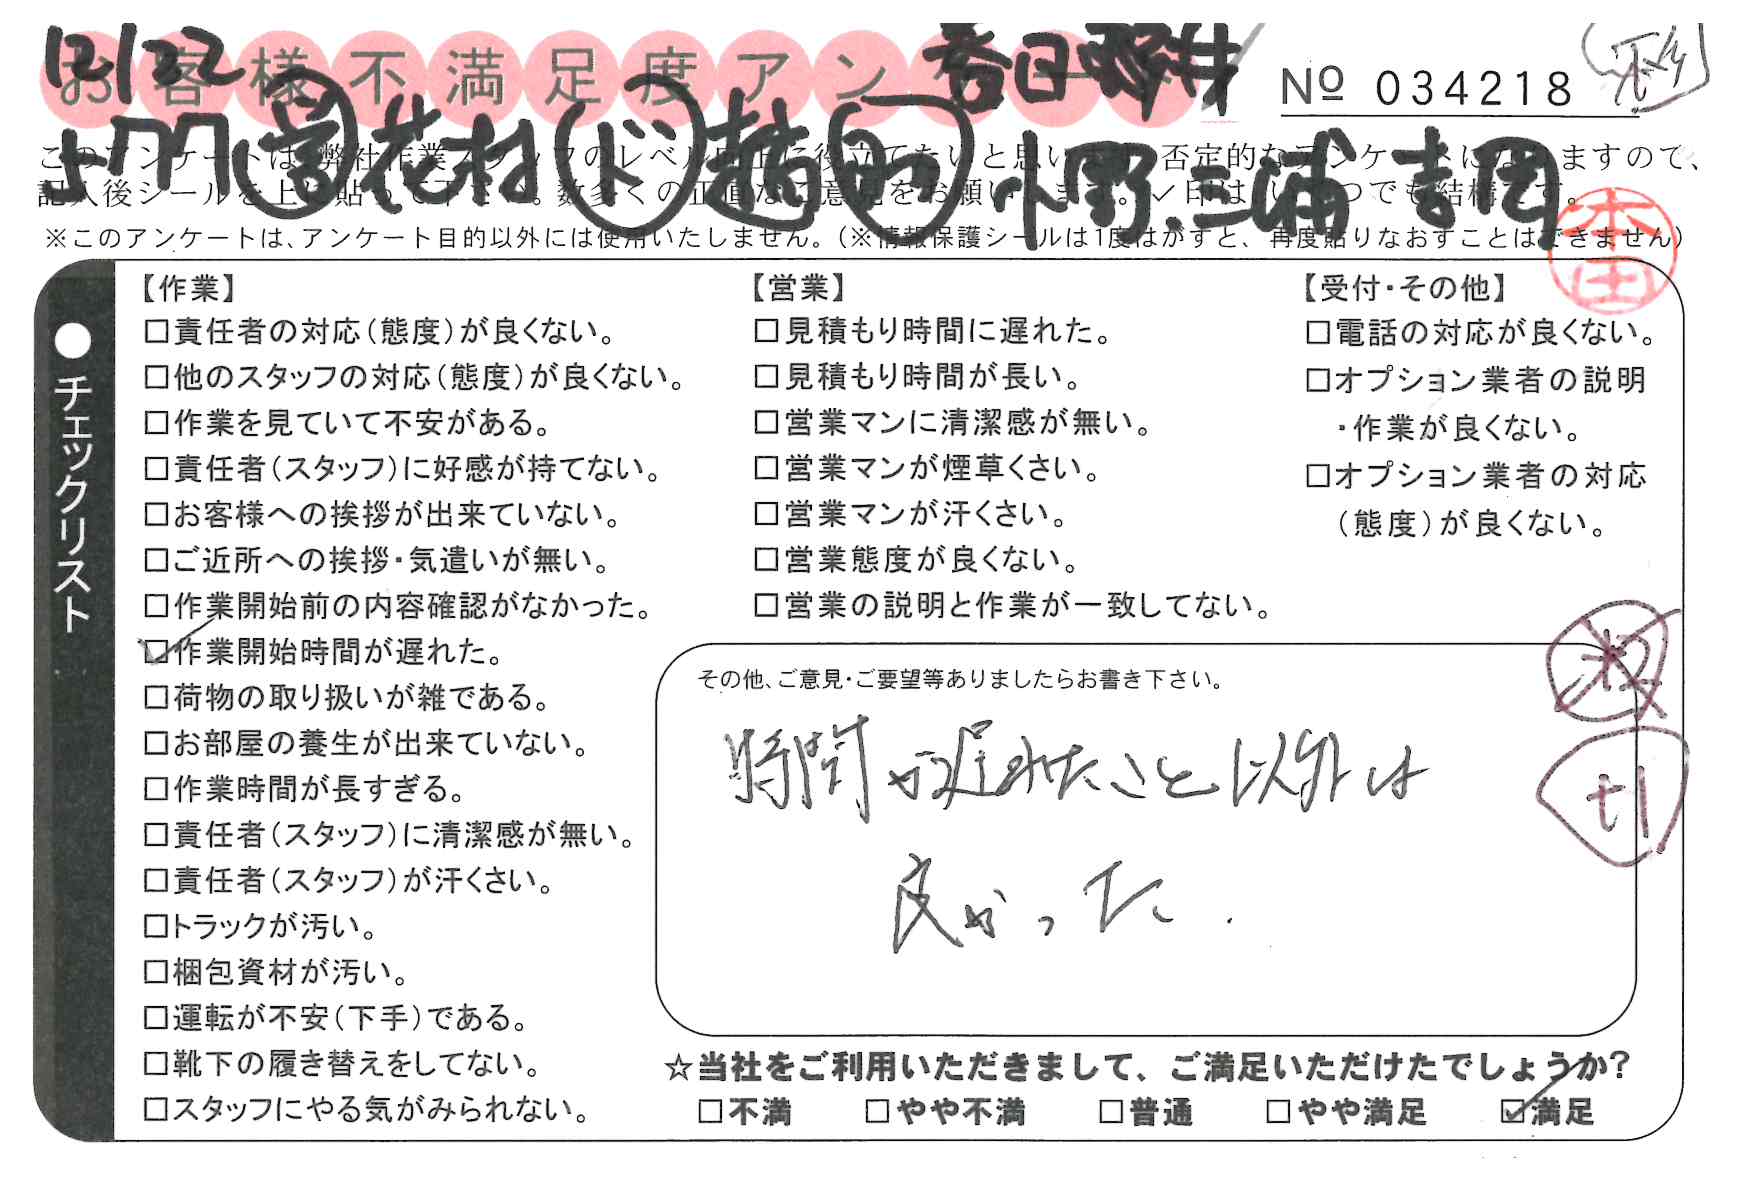 12/22 春日野井
お客様不満足度アンケート
№ 034218
土門 営 花村 ド 趙 小野.三浦 吉岡
このアンケートは、弊社作業スタッフのレベル向上に役立てたいと思います。否定的なアンケートになりますので、
記入後シールを上に貼って下さい。数多くの正直なご意見をお願いします。✓印はいくつでも結構です。
※このアンケートは、アンケート目的以外には使用いたしません。(※情報保護シールは1度はがすと、再度貼りなおすことはできません)
本田
●チェックリスト
【作業】
□責任者の対応(態度)が良くない。
□他のスタッフの対応(態度)が良くない。
□作業を見ていて不安がある。
□責任者(スタッフ)に好感が持てない。
□お客様への挨拶が出来ていない。
□ご近所への挨拶・気遣いが無い。
□作業開始前の内容確認がなかった。
☑作業開始時間が遅れた。
□荷物の取り扱いが雑である。
□お部屋の養生が出来ていない。
□作業時間が長すぎる。
□責任者(スタッフ)に清潔感が無い。
□責任者(スタッフ)が汗くさい。
□トラックが汚い。
□梱包資材が汚い。
□運転が不安(下手)である。
□靴下の履き替えをしてない。
□スタッフにやる気がみられない。
【営業】
□見積もり時間に遅れた。
□見積もり時間が長い。
□営業マンに清潔感が無い。
□営業マンが煙草くさい。
□営業マンが汗くさい。
□営業態度が良くない。
□営業の説明と作業が一致してない。
【受付・その他】
□電話の対応が良くない。
□オプション業者の説明
・作業が良くない。
□オプション業者の対応
(態度)が良くない。
その他、ご意見・ご要望等ありましたらお書き下さい。
時間が遅れたこと以外は
良かった.
☆当社をご利用いただきまして、ご満足いただけたでしょうか?
□不満 □やや不満 □普通 □やや満足 ☑満足